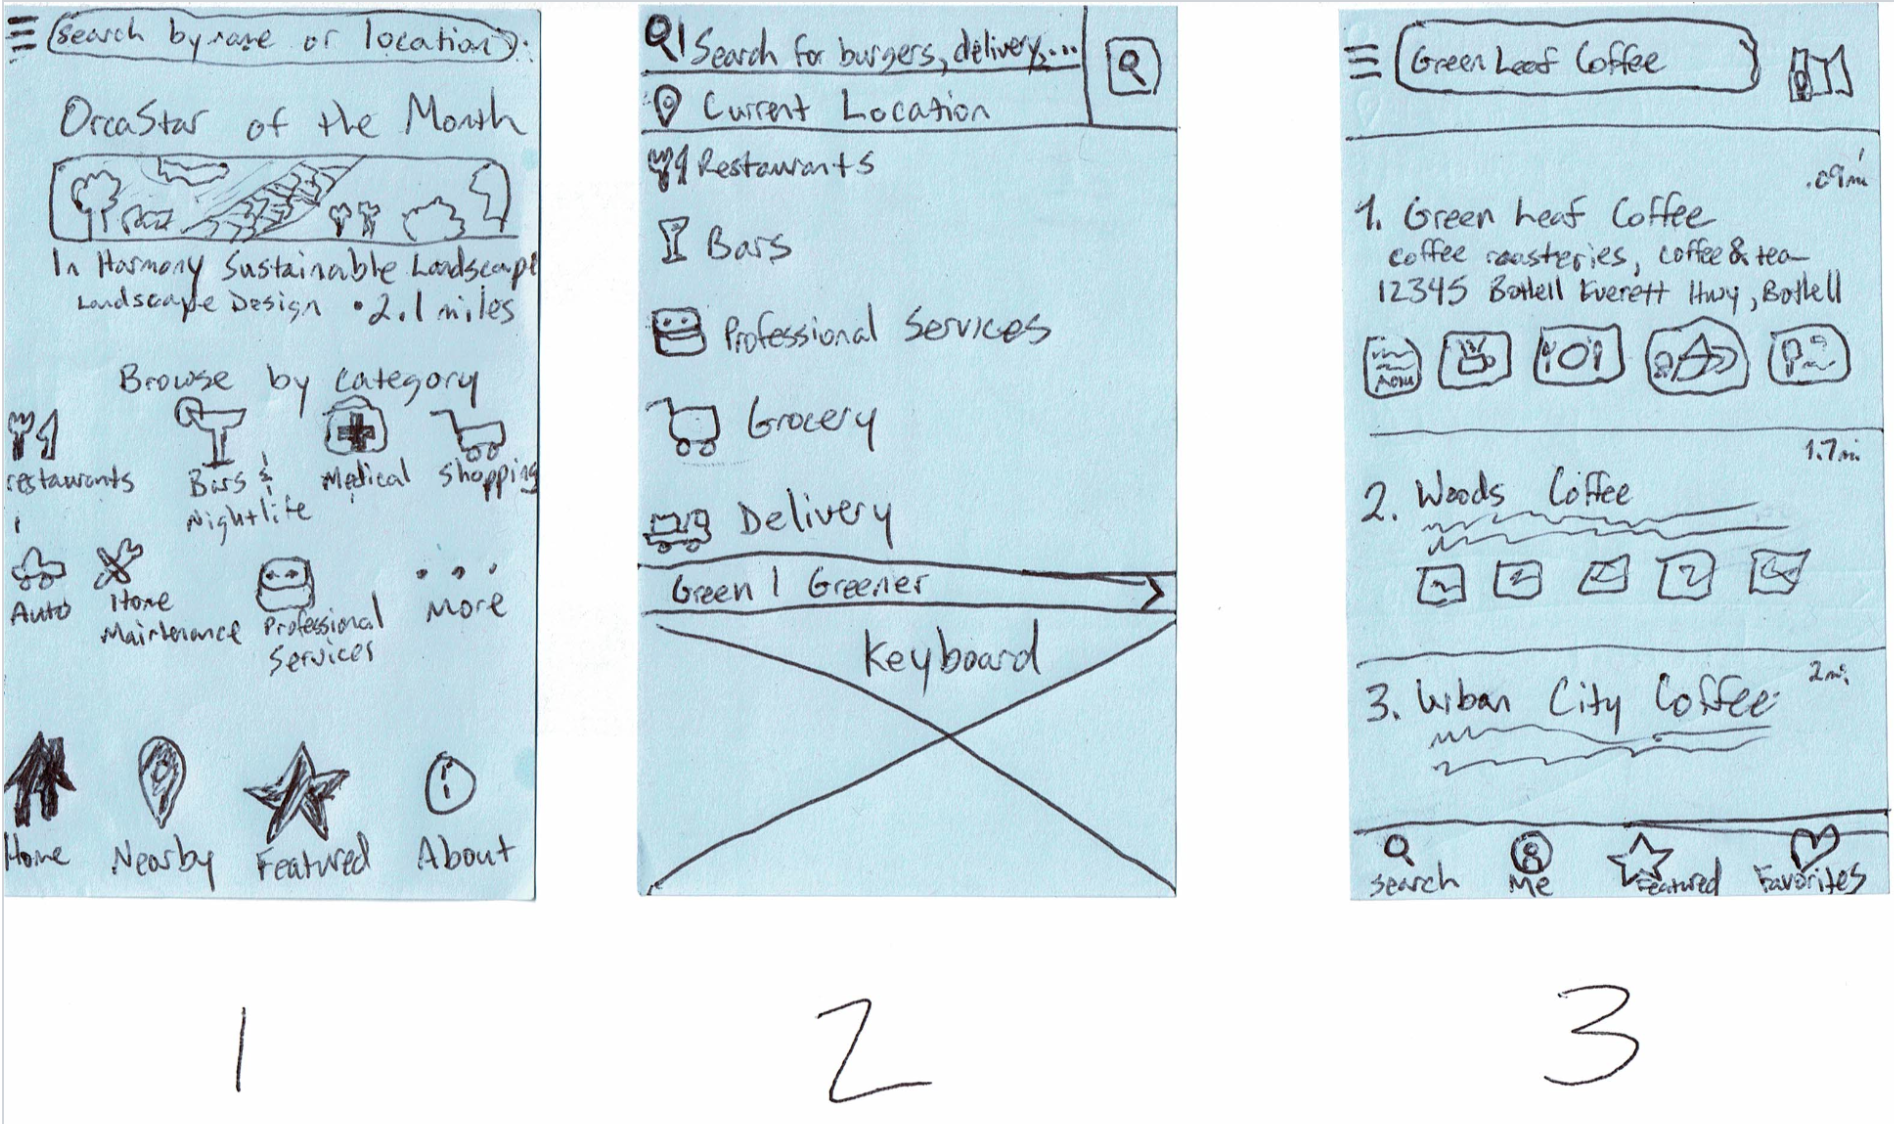 Search by name or location
OrcaStar of the Month
In Harmony Sustainable Landscape
Landscape Design • 2.1 miles
Browse by category
restaurants
Bars &
Nightlife
Medical
Shopping
Auto
Home
Maintenance
Professional
Services
More
Home
Nearby
Featured
About
1
Search for burgers, delivery, ...
Current Location
Restaurants
Bars
Professional Services
Grocery
Delivery
Green | Greener
Keyboard
2
Green Leaf Coffee
.09mi
1. Green Leaf Coffee
coffee roasteries, coffee & tea
12345 Bothell Everett Hwy, Bothell
Menu
1.7mi
2. Woods Coffee
2mi
3. Urban City Coffee
Search
Me
Featured
Favorites
3